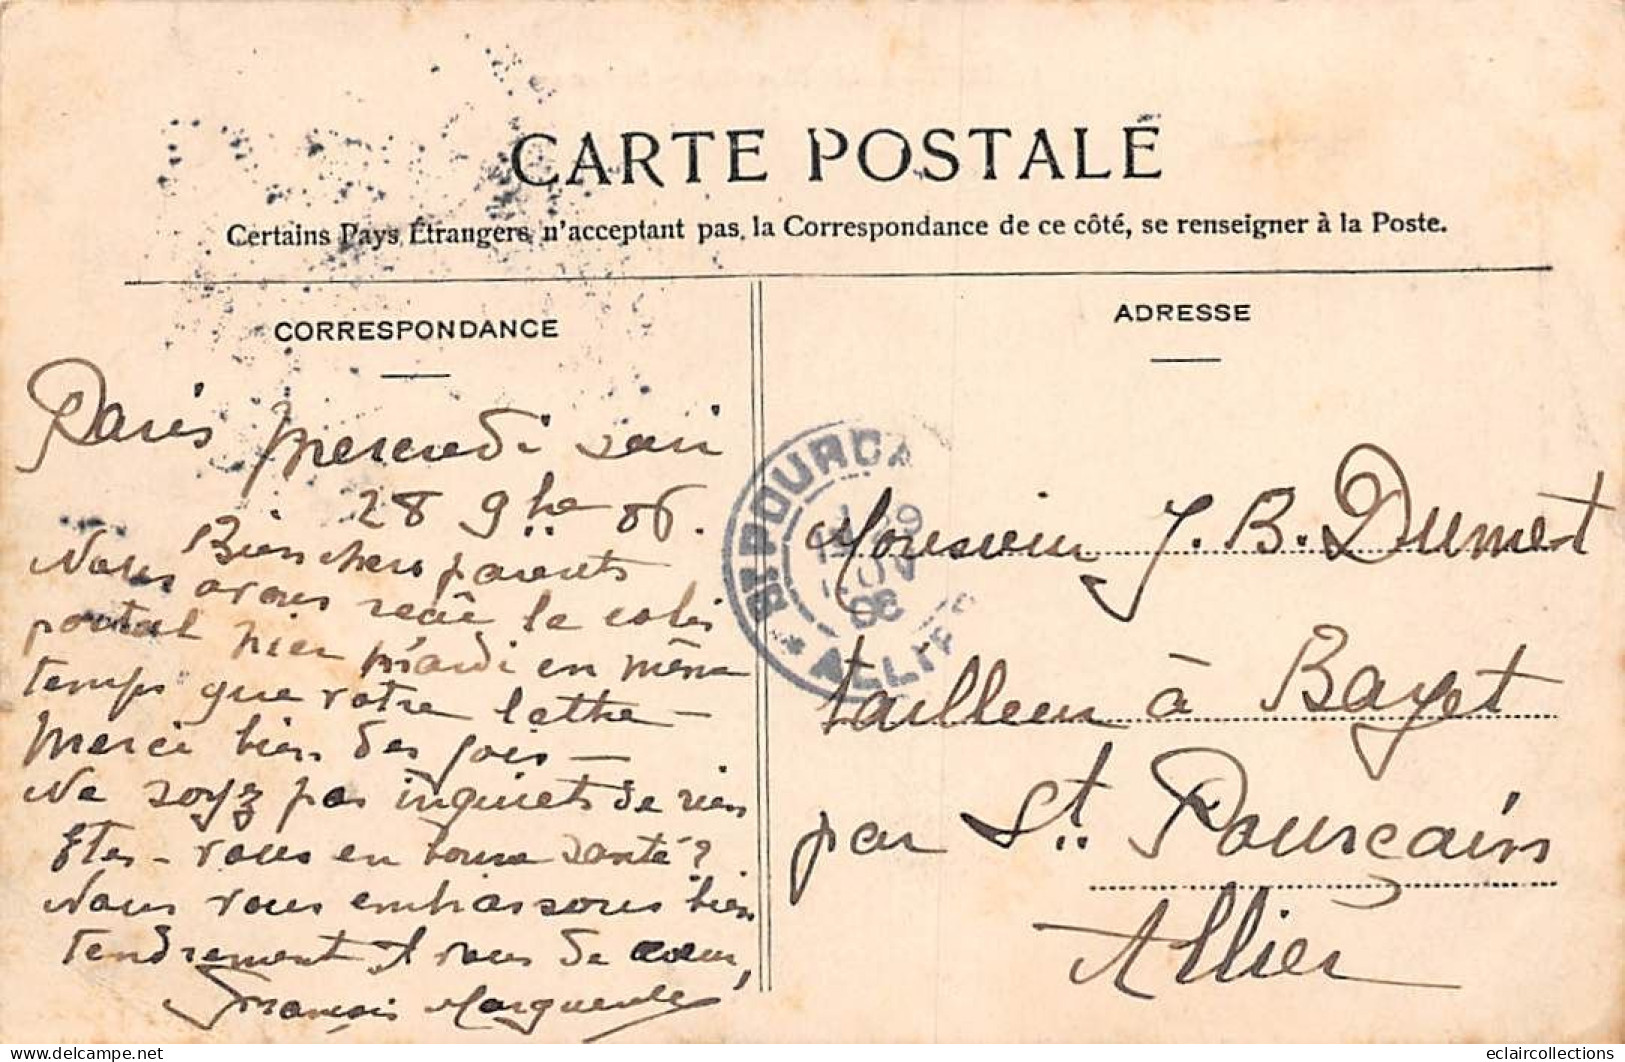 CARTE POSTALE
Certains Pays Étrangers n'acceptent pas la Correspondance de ce côté, se renseigner à la Poste.
CORRESPONDANCE
Paris Mercredi soir
28 9bre 06.
Bien chers parents
Nous avons reçu le colis
postal hier mardi en même
temps que votre lettre –
Merci bien des
Ne soyez pas inquiets de rien
Êtes-vous en bonne santé ?
Nous vous embrassons bien
tendrement A vous de cœur,
François Marguerite
ADRESSE
Monsieur J. B. Dumet
tailleur à Bayet
par St. Pourçain
Allier
ST POURÇA
29
NOV
06
* ALLIE
eclaircollections